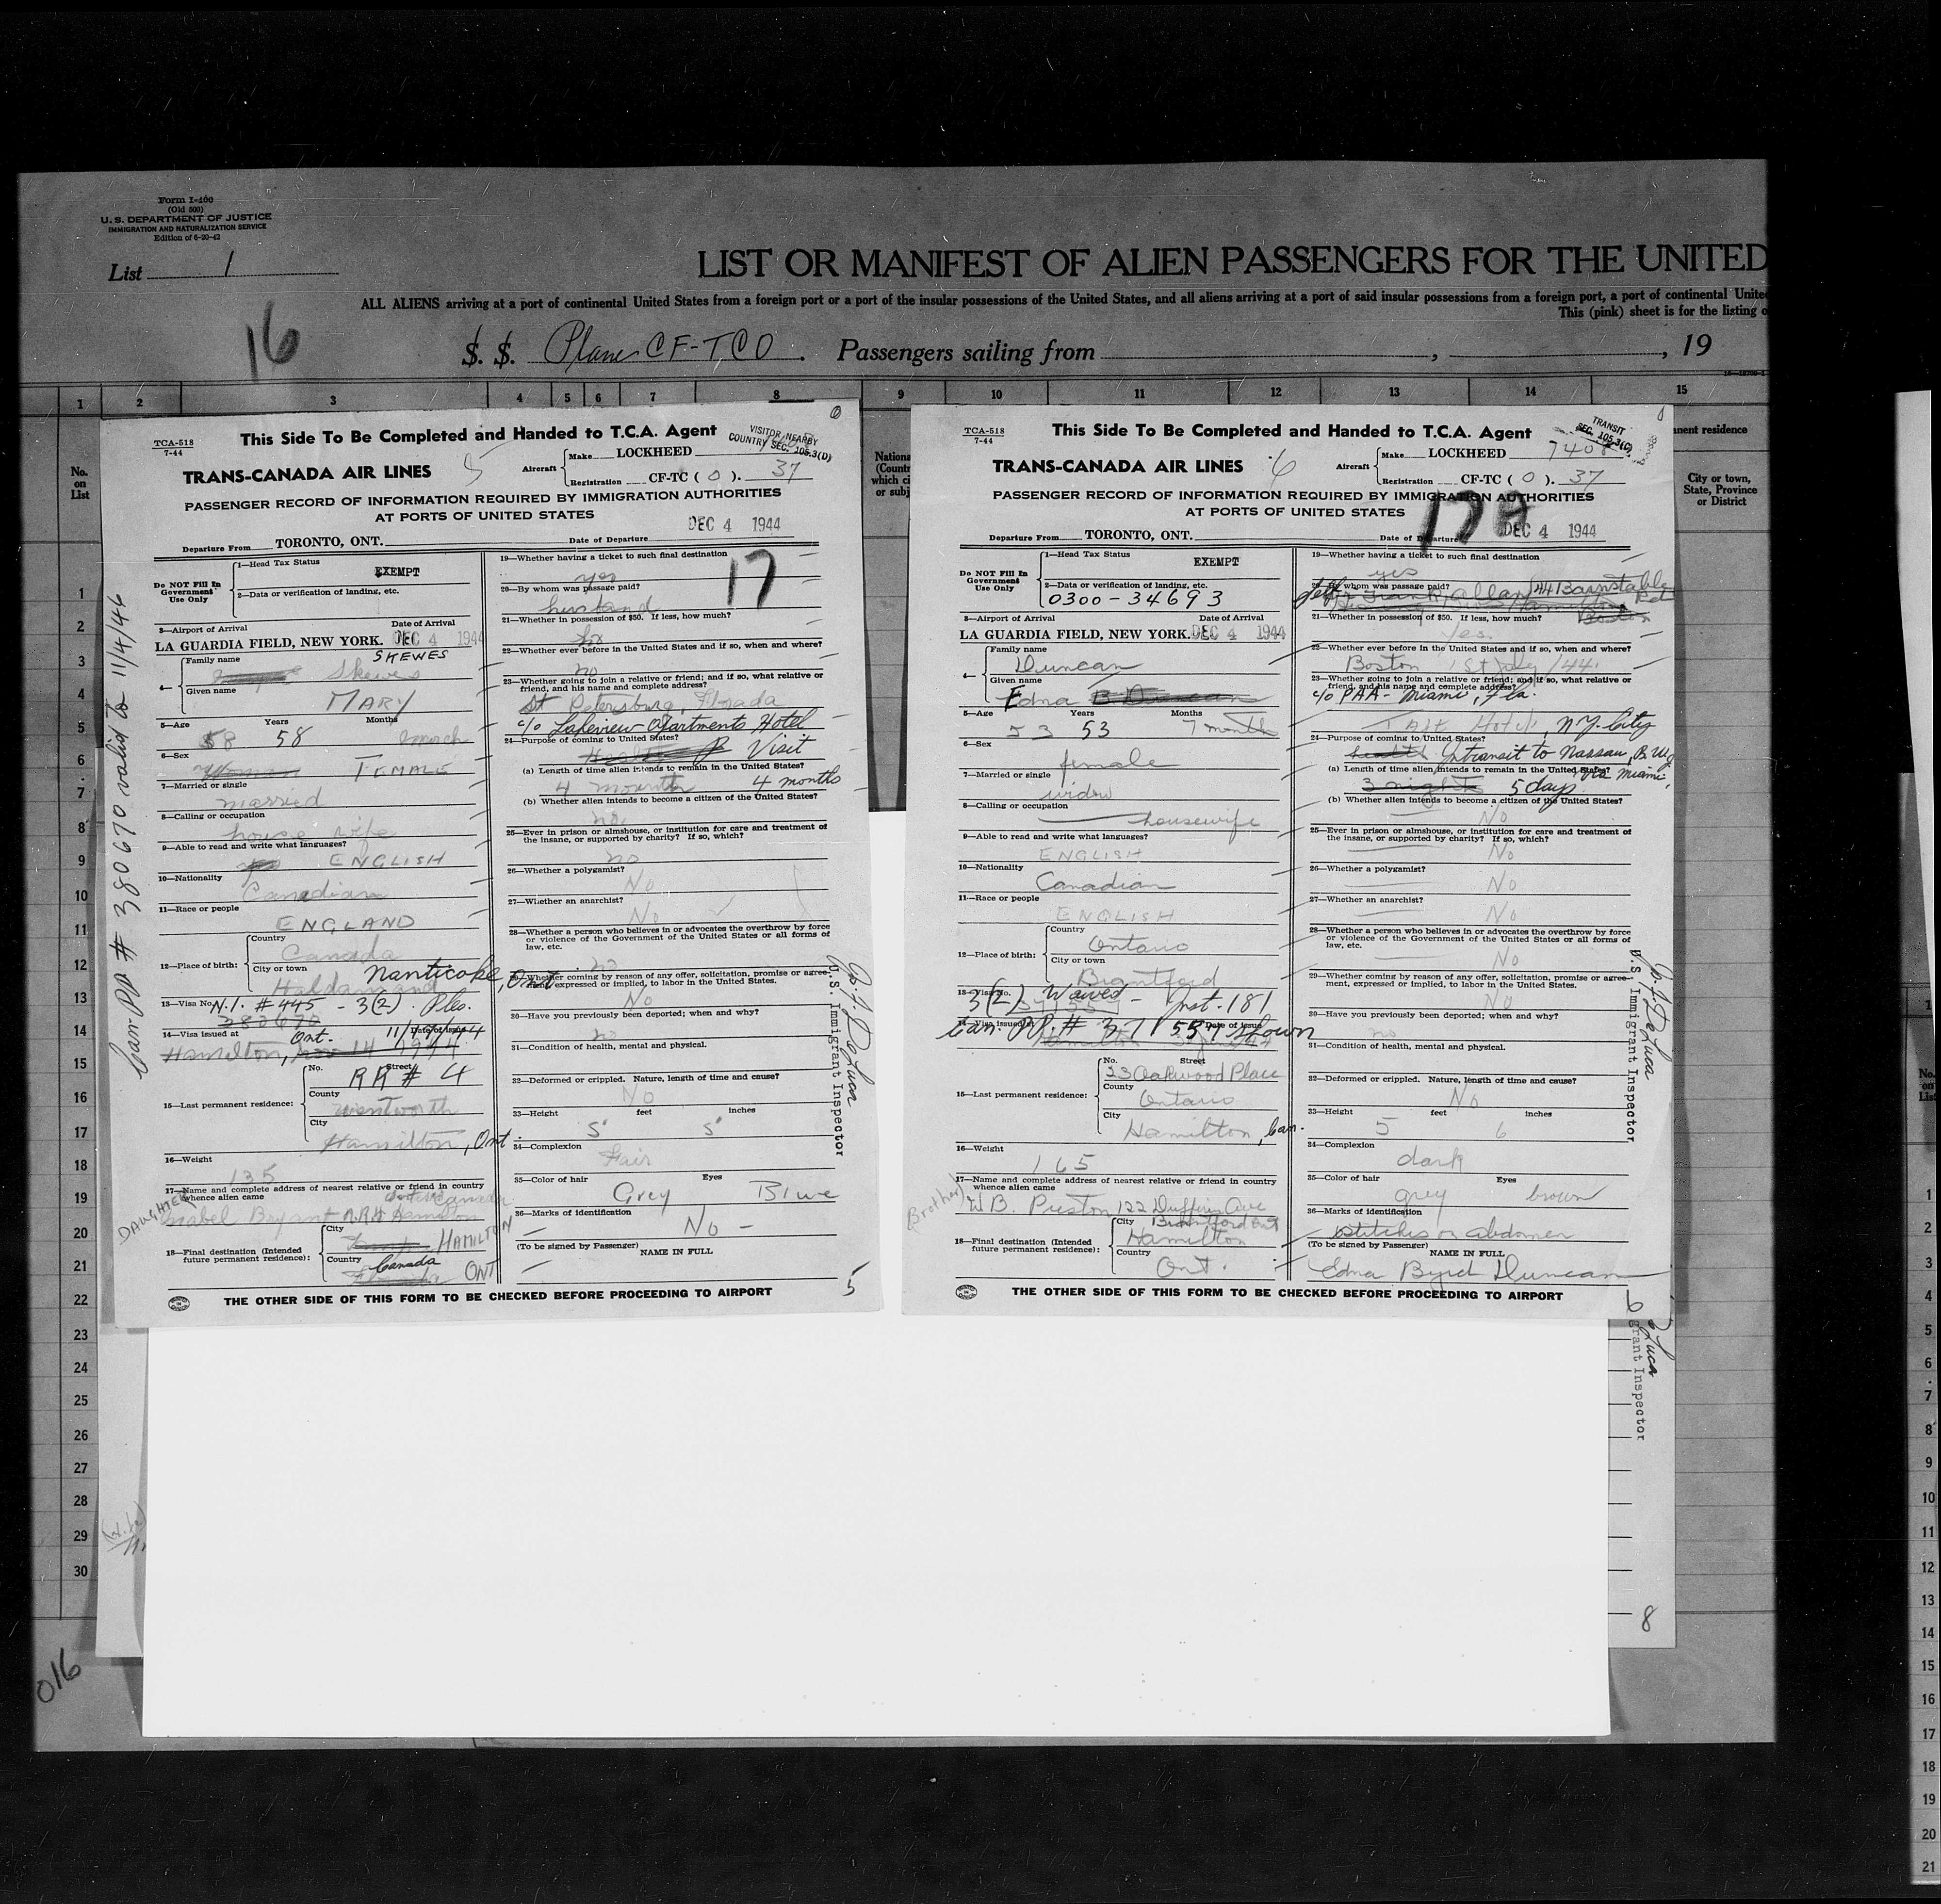 Form I-400
(Old 500)
U. S. DEPARTMENT OF JUSTICE
IMMIGRATION AND NATURALIZATION SERVICE
Edition of 6-20-42
List 1
LIST OR MANIFEST OF ALIEN PASSENGERS FOR THE UNITED
ALL ALIENS arriving at a port of continental United States from a foreign port or a port of the insular possessions of the United States, and all aliens arriving at a port of said insular possessions from a foreign port, a port of continental Unite
This (pink) sheet is for the listing o
16
S. S. Plane CF-TCO. Passengers sailing from , , 19
1 2 3 4 5 6 7 8 9 10 11 12 13 14 15
No. on List
TCA-518
7-44
This Side To Be Completed and Handed to T.C.A. Agent
VISITOR NEARBY
COUNTRY SEC. 105.3(D)
TRANS-CANADA AIR LINES 5
Aircraft
Make LOCKHEED
Registration CF-TC ( O ). 37
PASSENGER RECORD OF INFORMATION REQUIRED BY IMMIGRATION AUTHORITIES
AT PORTS OF UNITED STATES
DEC 4 1944
Departure From TORONTO, ONT. Date of Departure
17
Do NOT Fill In
Government
Use Only
1—Head Tax Status
EXEMPT
2—Data or verification of landing, etc.
3—Airport of Arrival Date of Arrival
LA GUARDIA FIELD, NEW YORK. DEC 4 1944
SKEWES
4— Family name Skewes
Given name MARY
5—Age Years Months
58 58
6—Sex
Woman FEMALE
7—Married or single
married
8—Calling or occupation
house wife
9—Able to read and write what languages?
yes ENGLISH
10—Nationality
Canadian
11—Race or people
ENGLAND
12—Place of birth: Country
Canada
City or town Nanticoke, Ont
Haldamand
13—Visa No. N.I. #445 - 3(2). Ples.
380670
14—Visa issued at Ont. Date of issue
Hamilton, Nov 14 1944
15—Last permanent residence: No. Street
RR # 4
County
Wentworth
City
Hamilton, Ont.
16—Weight
135
17—Name and complete address of nearest relative or friend in country
whence alien came
DAUGHTER
Isabel Bryant R.R.4 Hamilton
18—Final destination (Intended
future permanent residence):
City HAMILTON
Country Canada
ONT
19—Whether having a ticket to such final destination
yes
20—By whom was passage paid?
husband
21—Whether in possession of $50. If less, how much?
22—Whether ever before in the United States and if so, when and where?
no
23—Whether going to join a relative or friend; and if so, what relative or
friend, and his name and complete address?
St Petersburg, Florada
c/o Lakeview Apartments Hotel
24—Purpose of coming to United States?
Visit
(a) Length of time alien intends to remain in the United States?
4 mounth 4 months
(b) Whether alien intends to become a citizen of the United States?
no
25—Ever in prison or almshouse, or institution for care and treatment of
the insane, or supported by charity? If so, which?
no
26—Whether a polygamist?
No
27—Whether an anarchist?
No
28—Whether a person who believes in or advocates the overthrow by force
or violence of the Government of the United States or all forms of
law, etc.
no
29—Whether coming by reason of any offer, solicitation, promise or agree-
ment, expressed or implied, to labor in the United States.
No
30—Have you previously been deported; when and why?
no
31—Condition of health, mental and physical.
32—Deformed or crippled. Nature, length of time and cause?
No
33—Height feet inches
5 5
34—Complexion
Fair
35—Color of hair Eyes
Grey Blue
36—Marks of identification
No -
(To be signed by Passenger) NAME IN FULL
5
THE OTHER SIDE OF THIS FORM TO BE CHECKED BEFORE PROCEEDING TO AIRPORT
Can-PP # 380670 valid to 11/4/46
U.S. Immigrant Inspector
TCA-518
7-44
This Side To Be Completed and Handed to T.C.A. Agent
TRANSIT
SEC. 105.3(C)
TRANS-CANADA AIR LINES 6
Aircraft
Make LOCKHEED
Registration CF-TC ( O ). 37
PASSENGER RECORD OF INFORMATION REQUIRED BY IMMIGRATION AUTHORITIES
AT PORTS OF UNITED STATES
DEC 4 1944
Departure From TORONTO, ONT. Date of Departure
Do NOT Fill In
Government
Use Only
1—Head Tax Status
EXEMPT
2—Data or verification of landing, etc.
0300-34693
3—Airport of Arrival Date of Arrival
LA GUARDIA FIELD, NEW YORK. DEC 4 1944
4— Family name
Duncan
Given name
Edna B Duncan
5—Age Years Months
53 53 7 month
6—Sex
female
7—Married or single
widow
8—Calling or occupation
housewife
9—Able to read and write what languages?
ENGLISH
10—Nationality
Canadian
11—Race or people
ENGLISH
12—Place of birth: Country
Ontario
City or town
Brantford
13—Visa No.
3(2) Waived - Inst. 181
14—Visa issued at Date of issue
Can. PP. # 371557 shown
15—Last permanent residence: No. Street
23 Oakwood Place
County
Ontario
City
Hamilton, Can.
16—Weight
165
17—Name and complete address of nearest relative or friend in country
whence alien came
Brother)
W B. Preston 122 Dufferin Ave
Brantford Ont
18—Final destination (Intended
future permanent residence):
City
Hamilton
Country
Ont.
19—Whether having a ticket to such final destination
yes
20—By whom was passage paid?
Self
44 Barnstable Rd
21—Whether in possession of $50. If less, how much?
Boston
Yes.
22—Whether ever before in the United States and if so, when and where?
Boston 1st July /44.
23—Whether going to join a relative or friend; and if so, what relative or
friend, and his name and complete address?
c/o PAA - Miami, Fla.
Taft Hotel, N.Y. City
24—Purpose of coming to United States?
health Intransit to Nassau, B.W.I.
via Miami
(a) Length of time alien intends to remain in the United States?
3 nights 5 days
(b) Whether alien intends to become a citizen of the United States?
No
25—Ever in prison or almshouse, or institution for care and treatment of
the insane, or supported by charity? If so, which?
No
26—Whether a polygamist?
No
27—Whether an anarchist?
No
28—Whether a person who believes in or advocates the overthrow by force
or violence of the Government of the United States or all forms of
law, etc.
No
29—Whether coming by reason of any offer, solicitation, promise or agree-
ment, expressed or implied, to labor in the United States.
No
30—Have you previously been deported; when and why?
no
31—Condition of health, mental and physical.
32—Deformed or crippled. Nature, length of time and cause?
No
33—Height feet inches
5 6
34—Complexion
dark
35—Color of hair Eyes
grey brown
36—Marks of identification
stitches on abdomen
(To be signed by Passenger) NAME IN FULL
Edna Byrd Duncan
6
THE OTHER SIDE OF THIS FORM TO BE CHECKED BEFORE PROCEEDING TO AIRPORT
U.S. Immigrant Inspector
nent residence
City or town,
State, Province
or District
grant Inspector
8
016